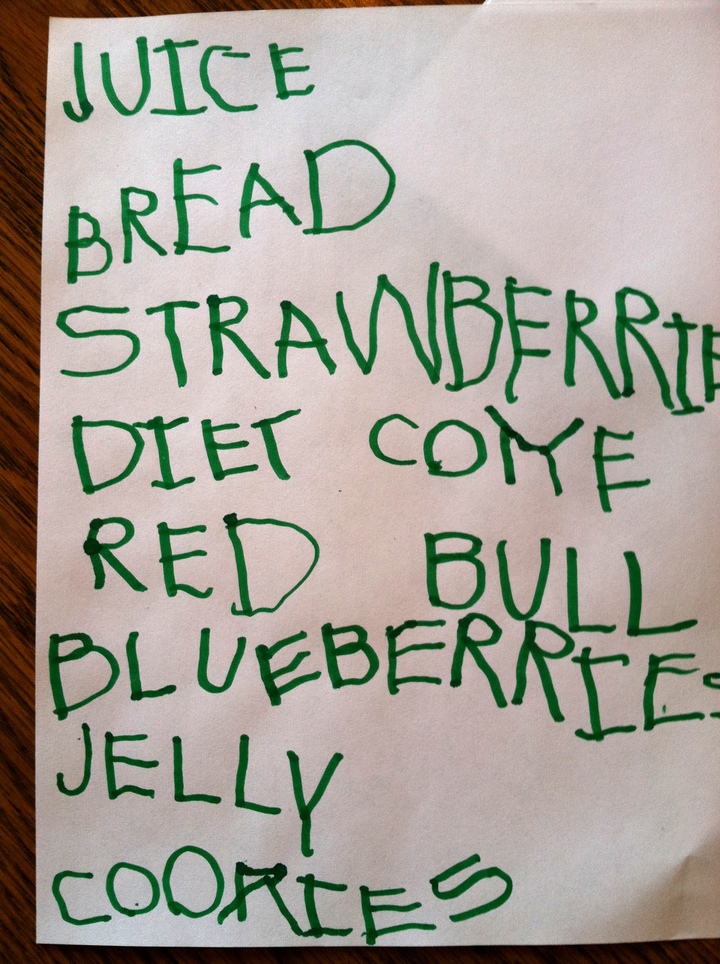 JUICE
BREAD
STRAWBERRIE
DIET COKE
RED BULL
BLUEBERRIES
JELLY
COOKIES